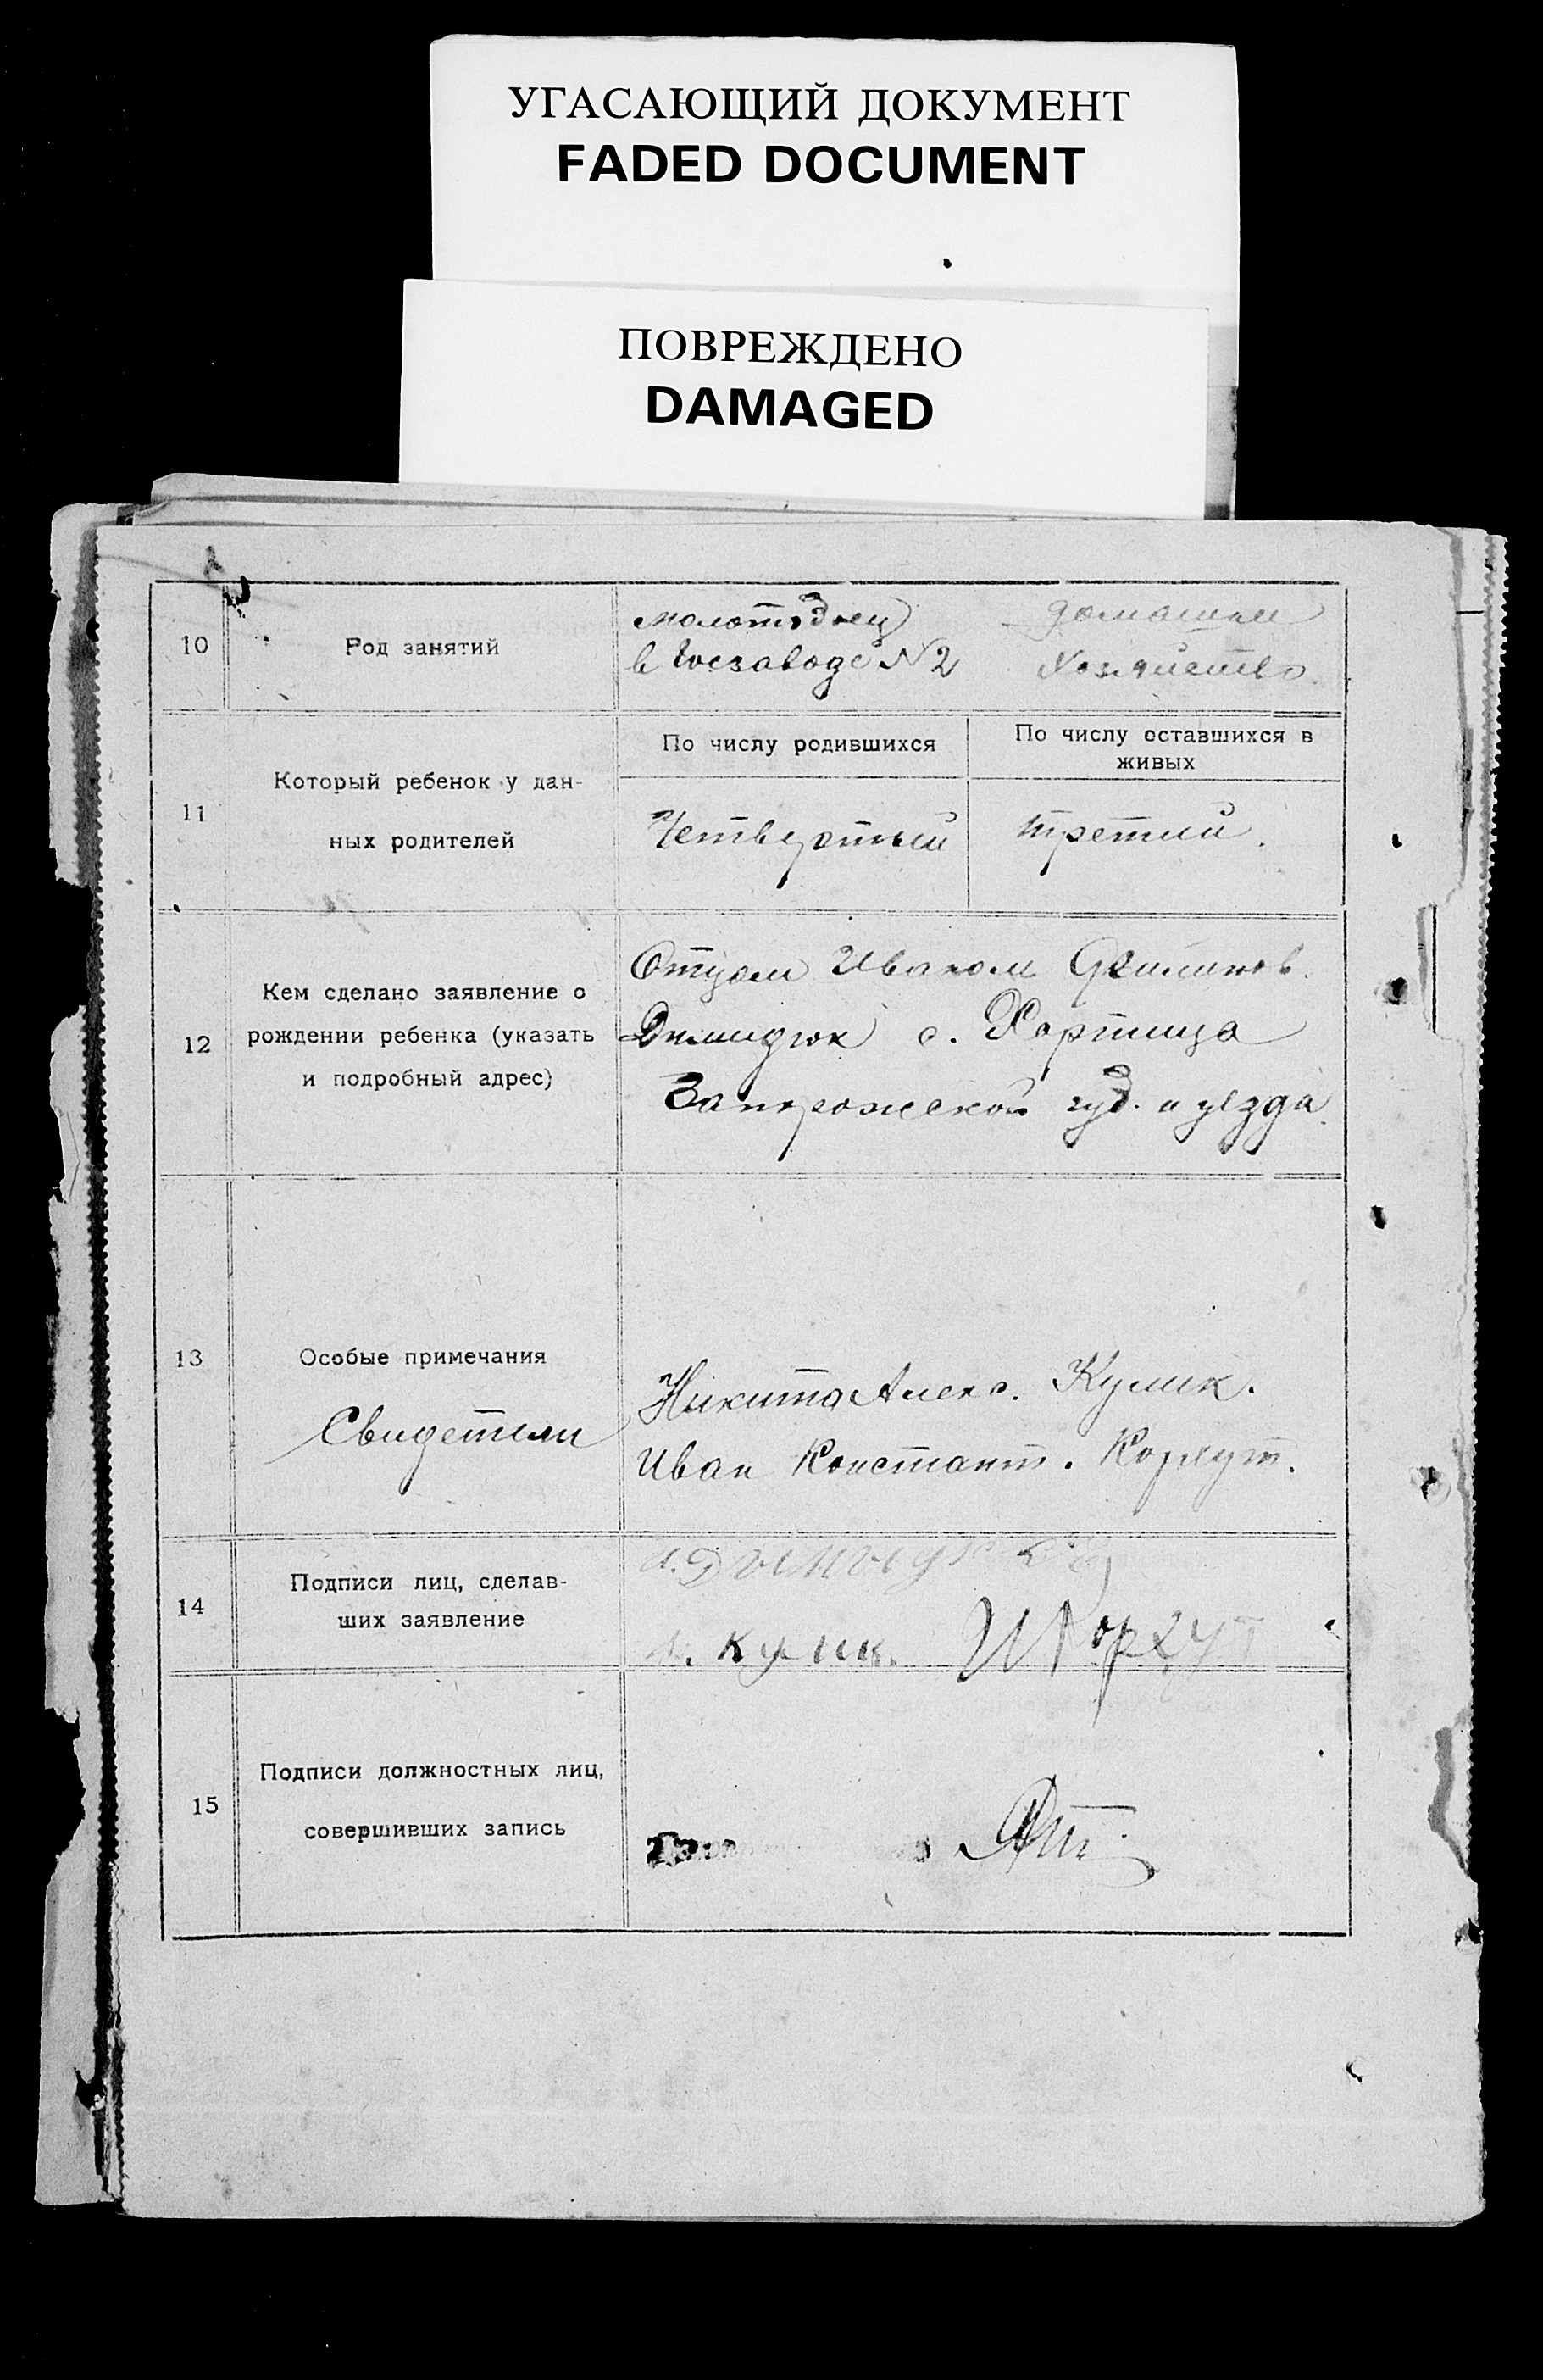 УГАСАЮЩИЙ ДОКУМЕНТ
FADED DOCUMENT
ПОВРЕЖДЕНО
DAMAGED
10
Род занятий
молотобоец
в Госзаводе N2
домашнее
хозяйство.
11
Который ребенок у дан-
ных родителей
По числу родившихся
По числу оставшихся в
живых
Четвертый
третий.
12
Кем сделано заявление о
рождении ребенка (указать
и подробный адрес)
Отцом Иваном
Димидюк с. Хортица
Запорожской губ. и уезда.
13
Особые примечания
Свидетели
Никита Алекс. Кулик.
Иван Констант. Коржут.
14
Подписи лиц, сделав-
ших заявление
Кулик.
15
Подписи должностных лиц,
совершивших запись